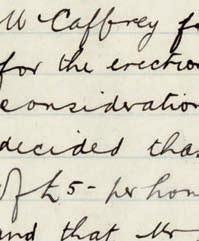 McCaffrey fo
for the erection
consideration
decided tha
of £5- per hon
and that Mr